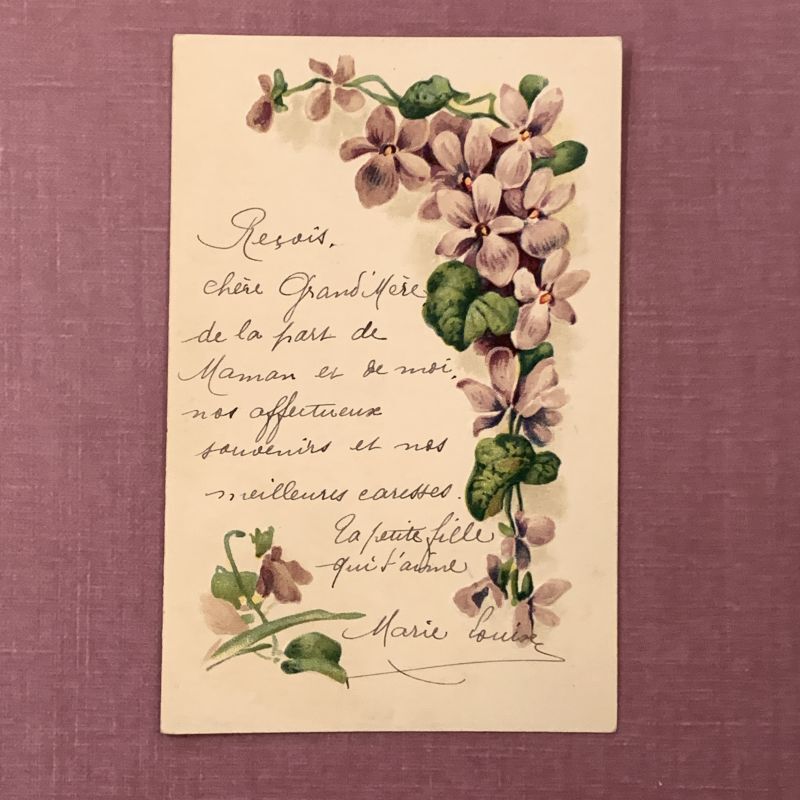 Reçois,
chère Grand'Mère
de la part de
Maman et de moi,
nos affectueux
souvenirs et nos
meilleures caresses.
Ta petite fille
qui t'aime
Marie Louise